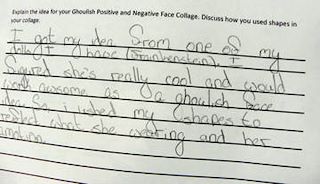 Explain the idea for your Ghoulish Positive and Negative Face Collage. Discuss how you used shapes in
your collage.
I got my idea from one of my
dolls I have (Frankenstein). I
figured she's really cool and would
look awsome as a ghoulish face
idea. So i ushed my shapes to
reflect what she wearing and her